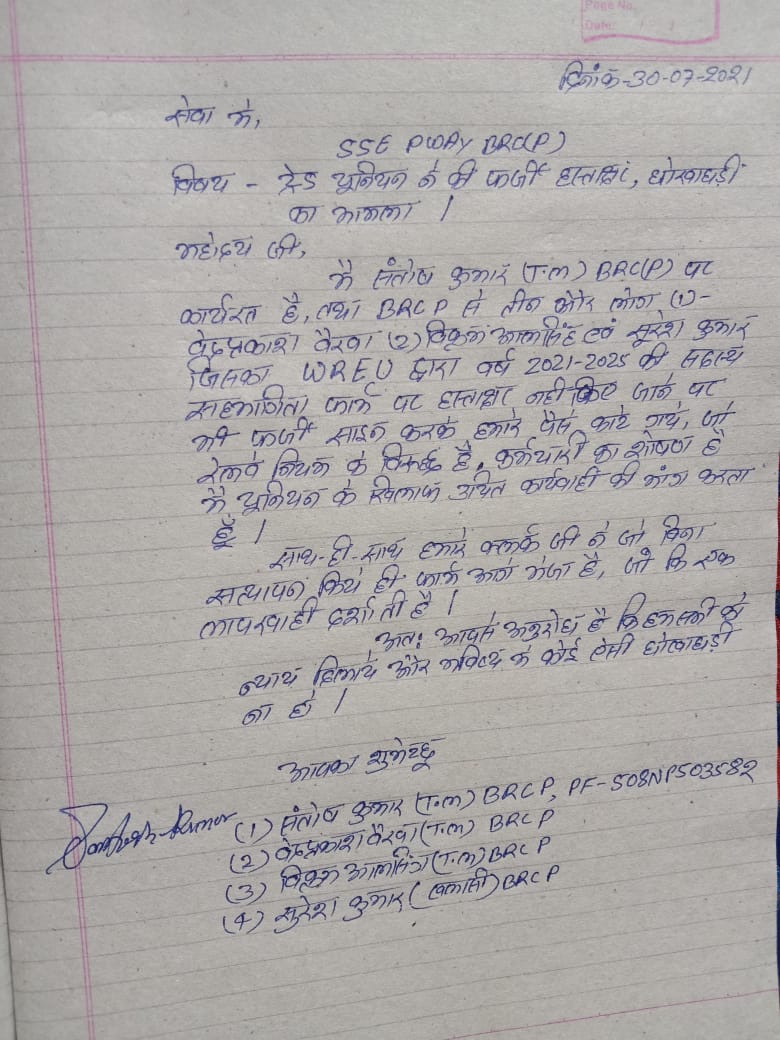 Page No.
Date: / /
दिनांक-30-07-2021
सेवा में,
SSE PWAY BRC(P)
विषय - ट्रेड यूनियन ने की फर्जी हस्ताक्षर, धोखाधड़ी
का मामला |
महोदय जी,
मैं संतोष कुमार (T.M) BRC(P) पर
कार्यरत है, तथा BRCP से तीन और लोग (1)-
वेदप्रकाश वैरवा (2) विक्रम आलसिंह एवं सुरेश कुमार
जिसका WREU द्वारा वर्ष 2021-2025 की सदस्य
सहभागिता फार्म पर हस्ताक्षर नही किए जाने पर
भी फर्जी साइन करके हमारे पैसे काटे गये, जो
रेलवे नियम के विरुद्ध है, कर्मचारी का शोषण है
मैं यूनियन के खिलाफ उचित कार्यवाही की मांग करता
हूँ |
साथ-ही-साथ हमारे क्लर्क जी ने जो बिना
सत्यापन किये ही फार्म आगे भेजा है, जो कि एक
लापरवाही दर्शाती है |
अतः आपसे अनुरोध है कि हमसभी को
न्याय दिलाये और भविष्य में कोई ऐसी धोखाधड़ी
ना हो |
आपका शुभेच्छु
Santosh Kumar
(1) संतोष कुमार (T.M) BRCP, PF-508NP503582
(2) वेदप्रकाश वैरवा (T.M) BRCP
(3) विक्रम आलसिंग (T.M) BRCP
(4) सुरेश कुमार (खलासी) BRCP